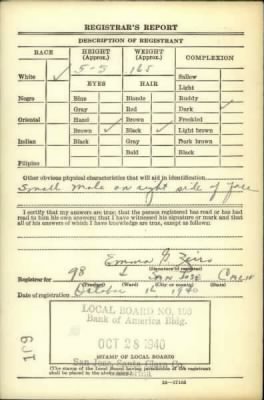 REGISTRAR'S REPORT
DESCRIPTION OF REGISTRANT
RACE HEIGHT (Approx.) WEIGHT (Approx.) COMPLEXION
5-5 165
White ✓ Sallow
EYES HAIR Light
Negro Blue Blonde Ruddy
Gray Red Dark ✓
Oriental Hazel Brown Freckled
Brown ✓ Black ✓ Light brown
Indian Black Gray Dark brown
Bald Black
Filipino
Other obvious physical characteristics that will aid in identification
Small mole on right side of face
I certify that my answers are true; that the person registered has read or has had
read to him his own answers; that I have witnessed his signature or mark and that
all of his answers of which I have knowledge are true, except as follows:
Emma
(Signature of registrar)
Registrar for 98 San Jose Calif
(Precinct) (Ward) (City or county) (State)
Date of registration October 16 1940
LOCAL BOARD NO. 100
Bank of America Bldg.
OCT 28 1940
STAMP OF LOCAL BOARD
San Jose, Santa Clara Co.
(The stamp of the Local Board having jurisdiction of the registrant
shall be placed in the above space.)